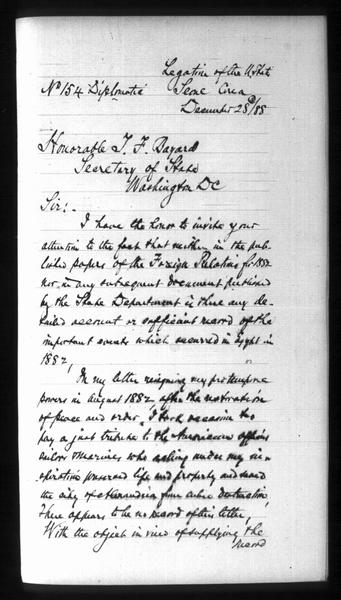 Legation of the U States
No 154 Diplomatic Seoul Corea
December 28th/88
Honorable T. F. Bayard
Secretary of State
Washington DC
Sir:-
I have the honor to invite your
attention to the fact that neither in the pub-
lished papers of the Foreign Relations for 1882
nor in any subsequent document published
by the State Department is there any de-
tailed account or sufficient record of the
important events which occurred in Egypt in
1882,
In my letter resigning my pro tempore
powers in August 1882 after the restoration
of peace and order, I took occasion to
pay a just tribute to the American officers
sailors & marines who acting under my in-
spiration preserved life and property and saved
the city of Alexandria from entire destruction,
There appears to be no record of this letter,
With the object in view of supplying the
record